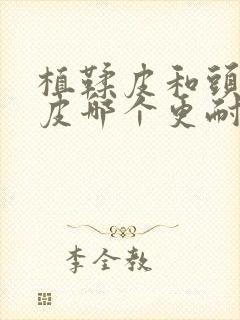 植鞣皮和頭
皮哪个更耐
李全教